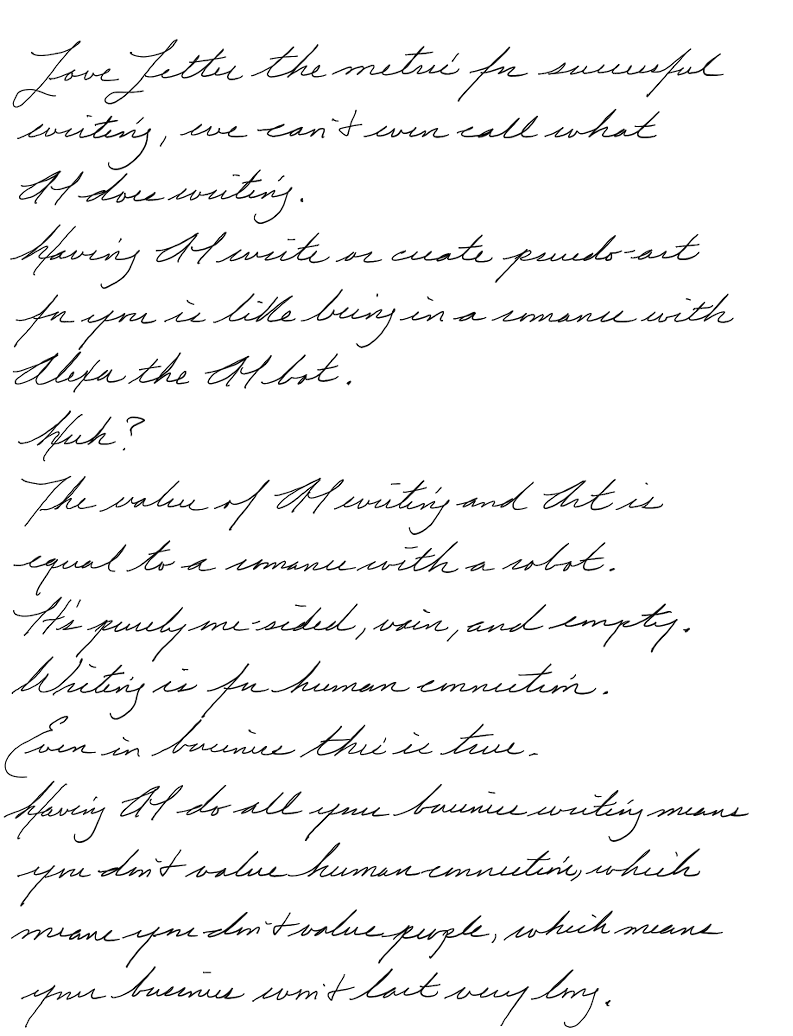 Love Letter the metric for successful
writing, we can't even call what
AI does writing.
Having AI write or create pseudo-art
for you is like being in a romance with
Alexa the AI bot.
Huh?
The value of AI writing and Art is
equal to a romance with a robot.
It's purely one-sided, vain, and empty.
Writing is for human connection.
Even in business this is true.
Having AI do all your business writing means
you don't value human connection, which
means you don't value people, which means
your business won't last very long.